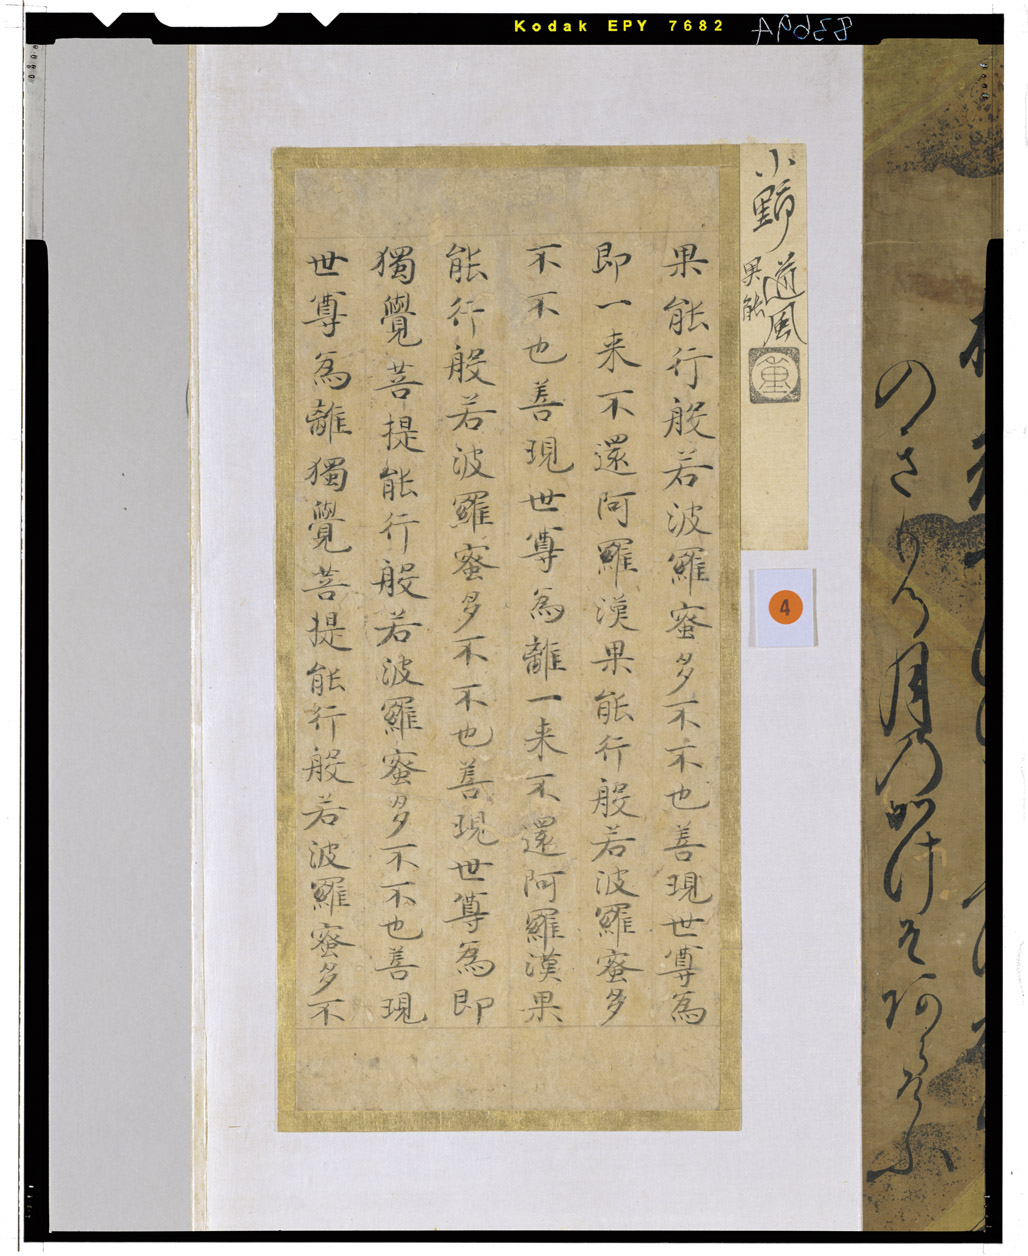 Kodak EPY 7682
月乃かけそ阿らそふ
小野道風
果能
4
果能行般若波羅蜜多不不也善現世尊為
即一来不還阿羅漢果能行般若波羅蜜多
不不也善現世尊為離一来不還阿羅漢果
能行般若波羅蜜多不不也善現世尊為即
獨覺菩提能行般若波羅蜜多不不也善現
世尊為離獨覺菩提能行般若波羅蜜多不